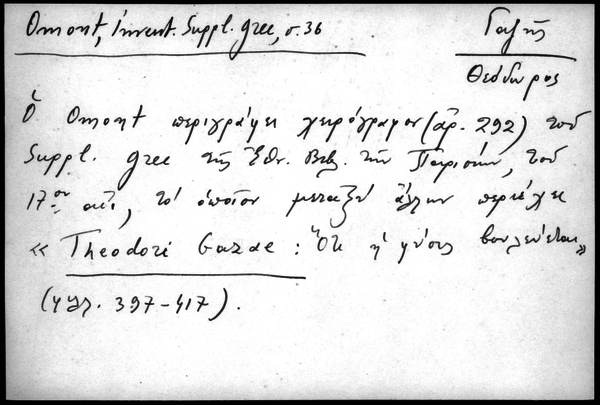 Omont, Invent. Suppl. grec, σ. 36
Γαζῆς
Θεόδωρος
Ὁ Omont περιγράφει χειρόγραφον (ἀρ. 292) τοῦ
Suppl. grec τῆς Ἐθν. Βιβ. τῶν Παρισίων, τοῦ
17ου αἰ., τὸ ὁποῖον μεταξὺ ἄλλων περιέχει
« Theodori Gazae : Ὅτι ἡ φύσις βουλεύεται»
(φφ. 397-417).